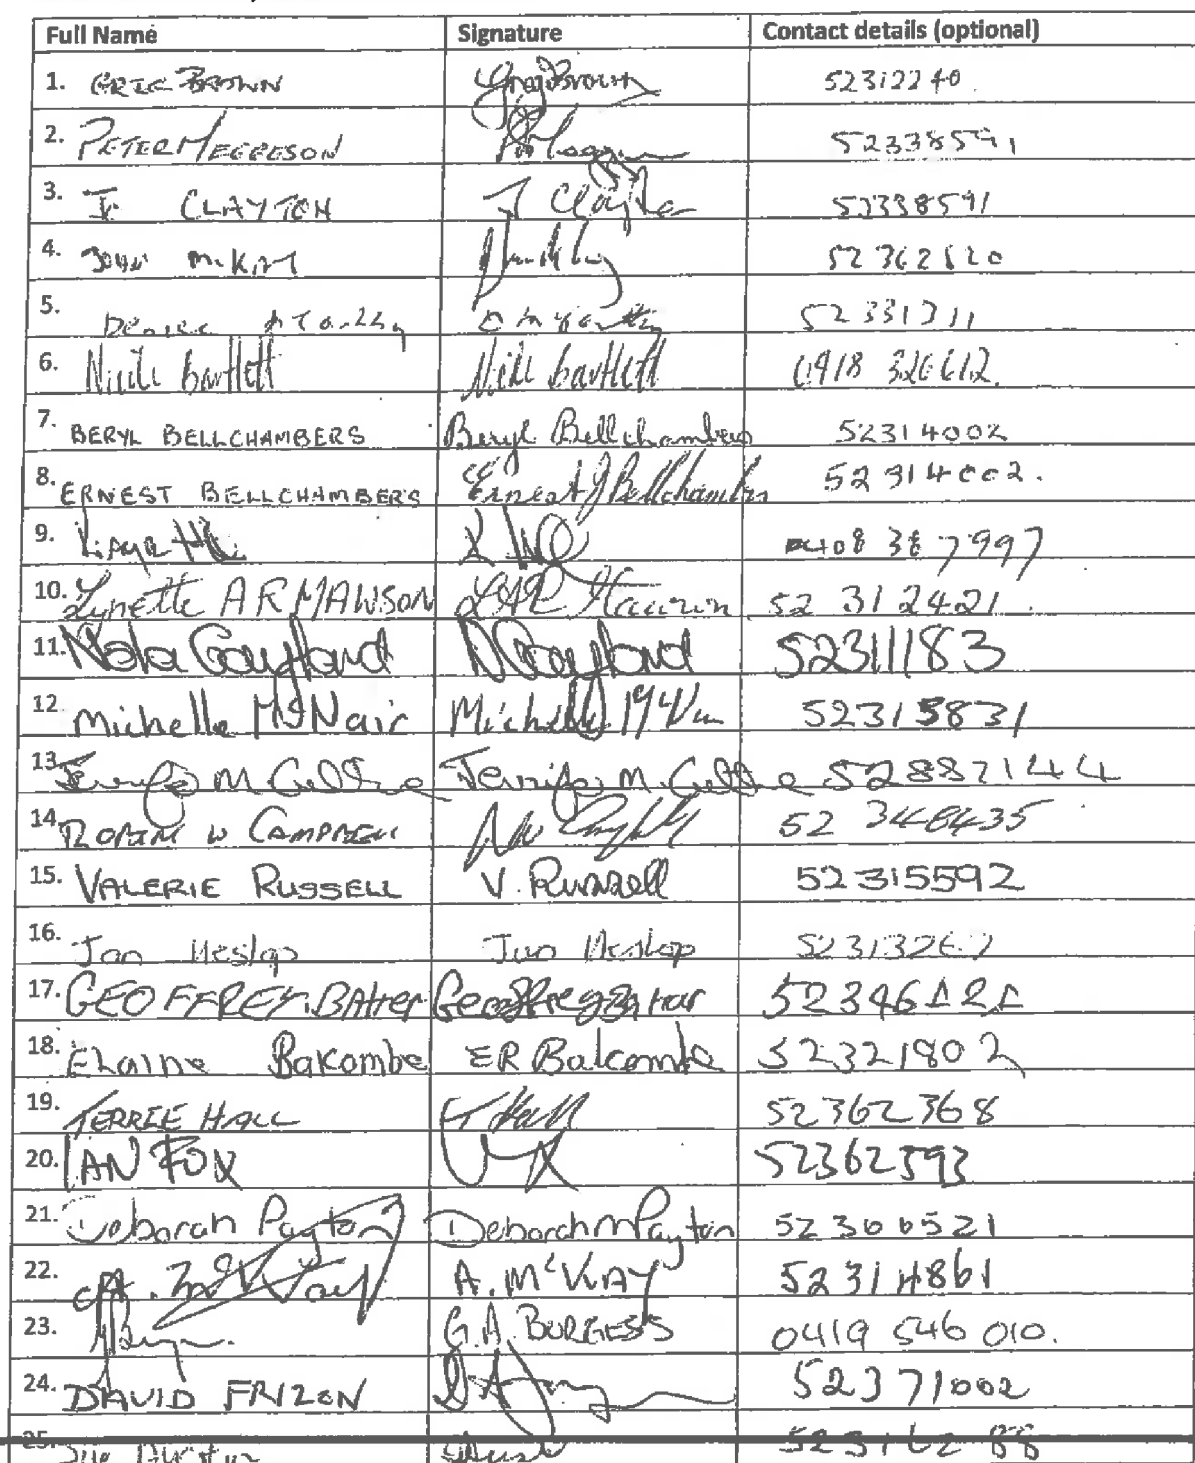 Full Name Signature Contact details (optional)
1. ERIC BROWN 52312240
2. PETER MEGGESON 52338591
3. J. CLAYTON J Clayton 52338591
4. JOHN McKAY 52362120
5. 52331311
6. Nicole Bartlett Nicole Bartlett 0418 326612.
7. BERYL BELLCHAMBERS Beryl Bellchambers 52314002
8. ERNEST BELLCHAMBERS Ernest J Bellchambers 52314002.
9. 0408 387997
10. Lynette A R MAWSON 52 312421
11. Nola Gayford N Gayford 52311183
12 Michelle McNair Michelle McNair 52315831
13. Jennifer M. Jennifer M. 52887144
14. ROBIN W CAMPBELL 52 348435
15. VALERIE RUSSELL V. Russell 52315592
16. Jan Heslop Jan Heslop 52313267
17. GEOFFREY. 52346121
18. Elaine Balcombe ER Balcombe 52321802
19. TERRIE HALL T Hall 52362368
20. IAN FOX 52362393
21. Deborah Payton Deborah M Payton 52300521
22. A. McKay A. McKAY 52314861
23. G.A. BURGESS 0419 546 010.
24. DAVID FRIZON 52371002
25. 52316288